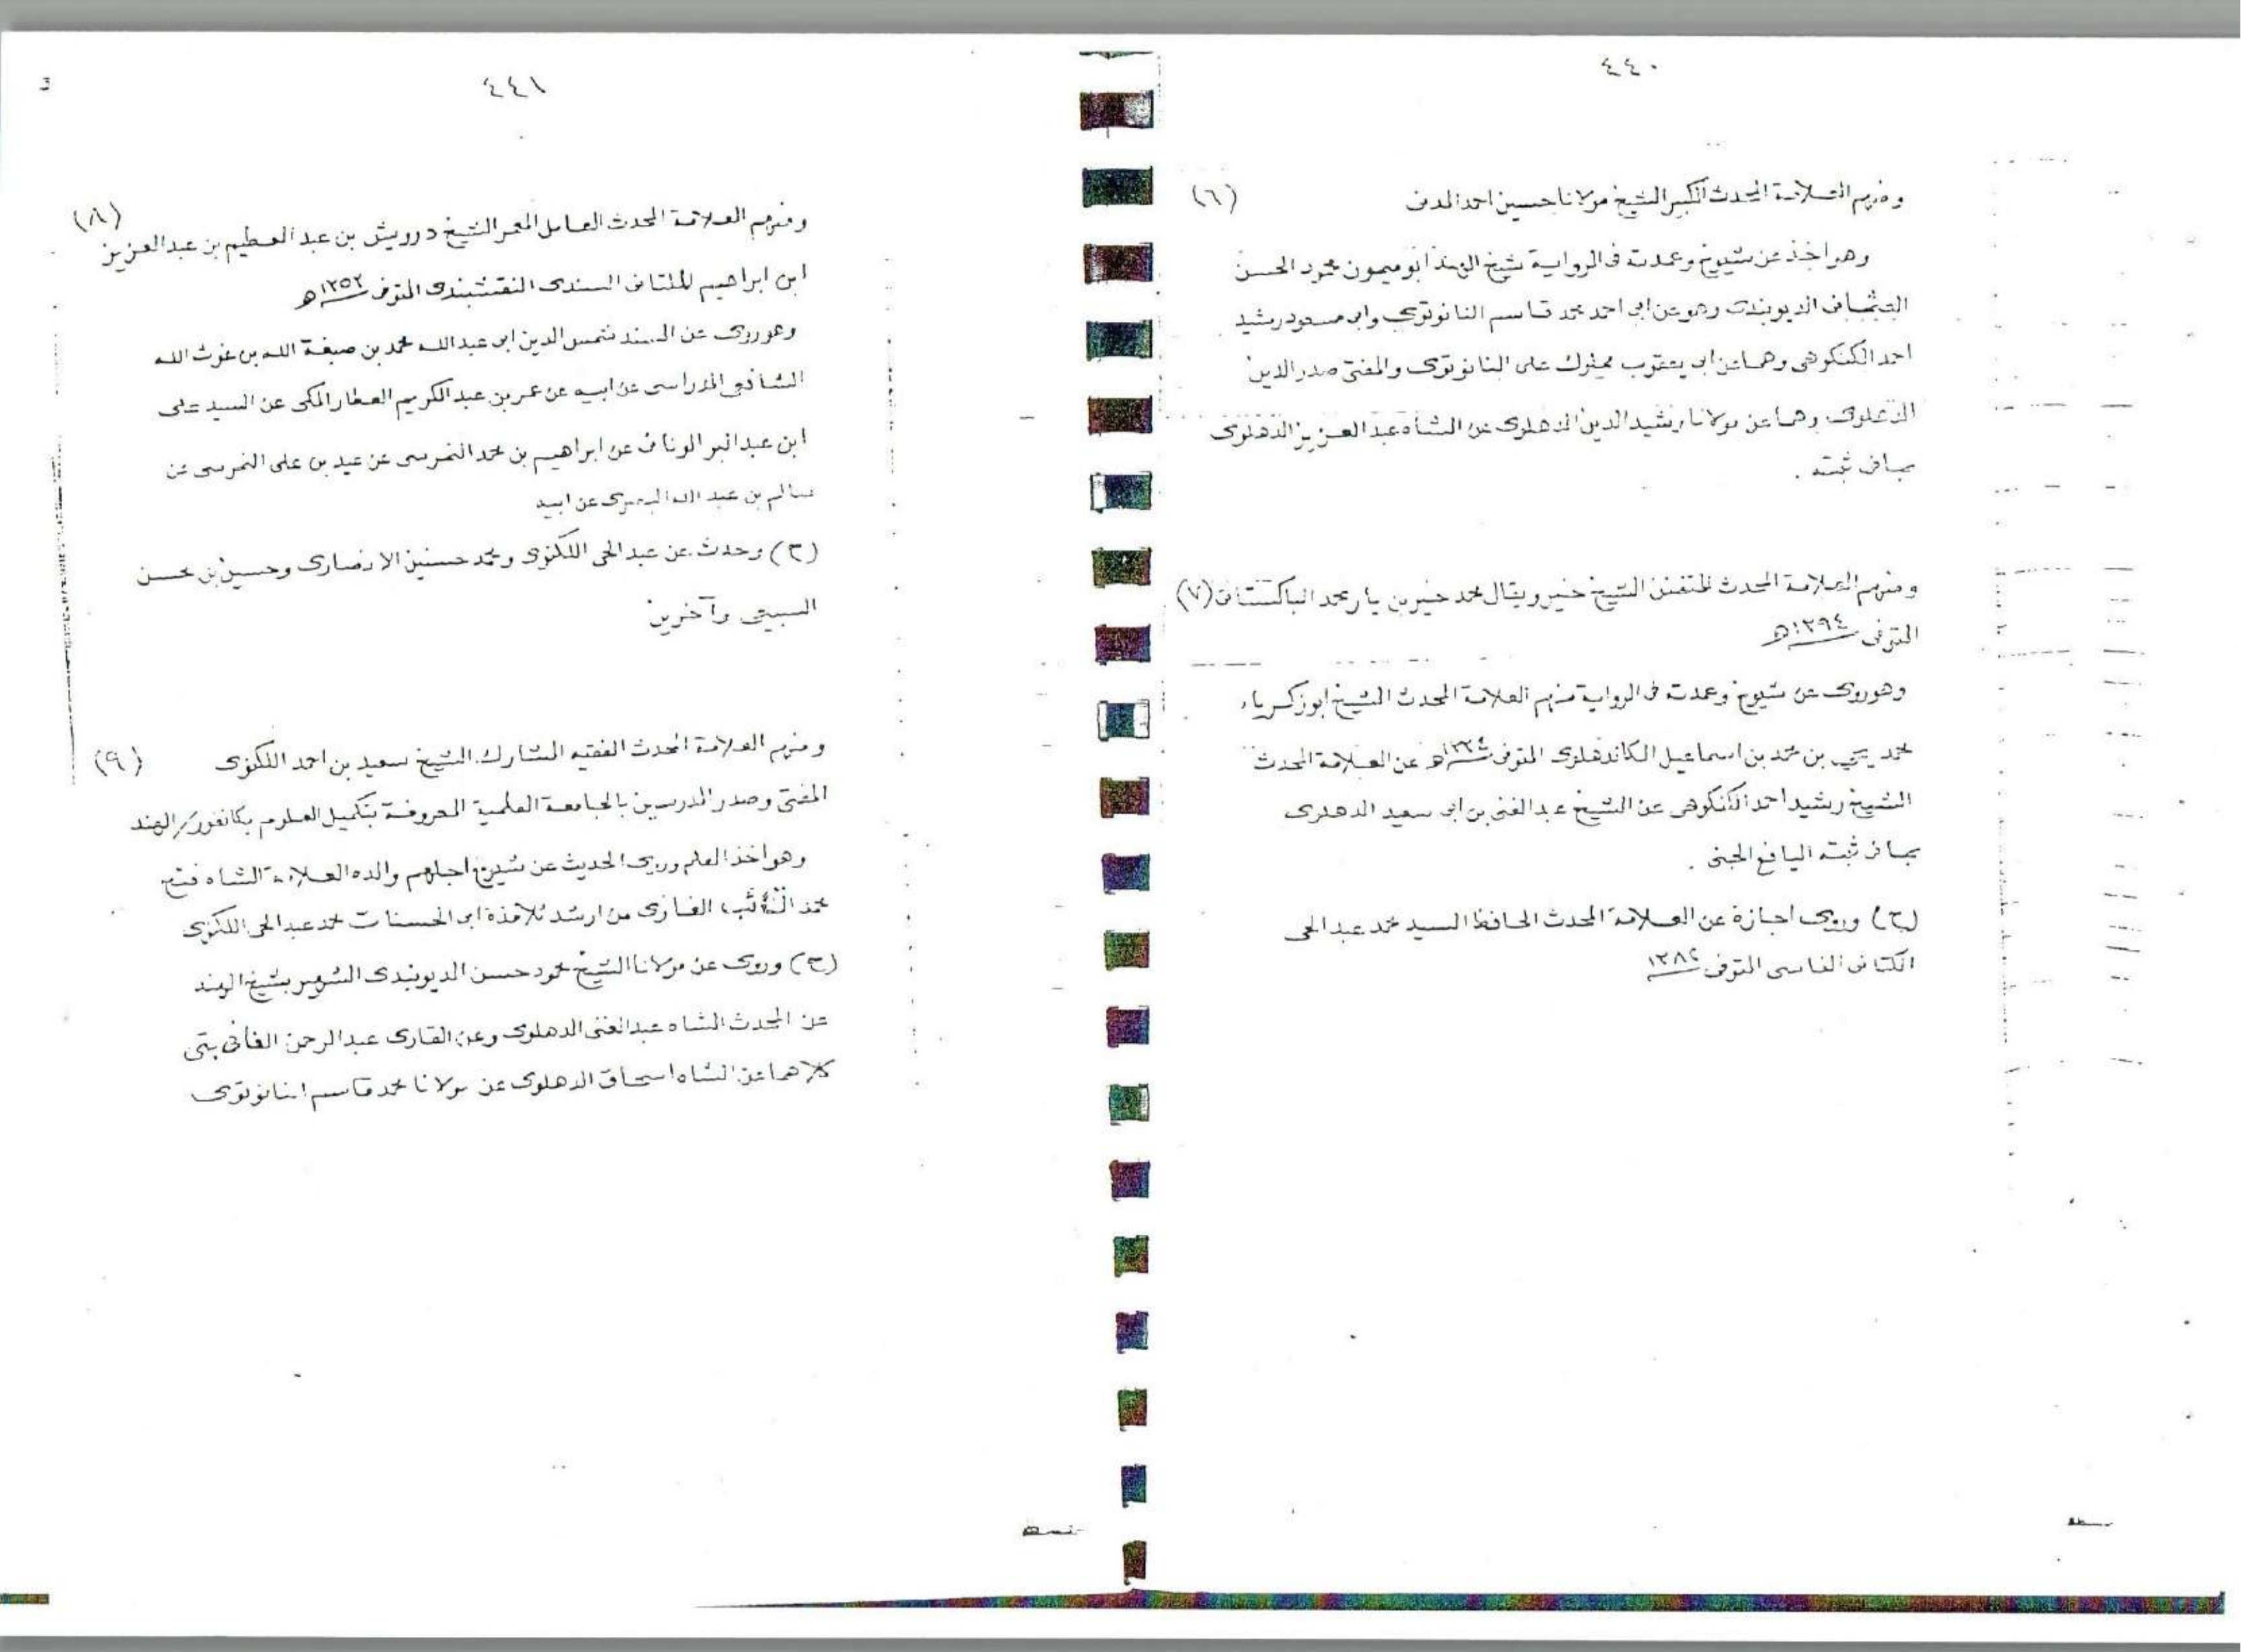 ٤٤٠
ومنهم العلامة المحدث الكبير الشيخ مولانا حسين احمد المدنى (٦)
وهو اخذ عن شيوخ وعمدته فى الرواية شيخ الهند ابو ميمون محمود الحسن
العثمانى الديوبندى وهو عن ابى احمد محمد قاسم النانوتوى وابى مسعود رشيد
احمد الكنكوهى وهما عن ابى يعقوب مملوك على النانوتوى والمفتى صدر الدين
الدهلوى وهما عن مولانا رشيد الدين الدهلوى عن الشاه عبد العزيز الدهلوى
بما فى ثبته .
ومنهم العلامة المحدث المتفنن الشيخ خير ويقال محمد خير بن يار محمد الباكستانى (٧)
المتوفى ١٣٩٤ه
وهو روى عن شيوخ وعمدته فى الرواية منهم العلامة المحدث الشيخ ابو زكرياء
محمد يحيى بن محمد بن اسماعيل الكاندهلوى المتوفى ١٣٣٤ه عن العلامة المحدث
الشيخ رشيد احمد الكنكوهى عن الشيخ عبد الغنى بن ابى سعيد الدهلوى
بما فى ثبته اليانع الجنى .
(ح) وروى اجازة عن العلامة المحدث الحافظ السيد محمد عبد الحى
الكتانى الفاسى المتوفى ١٣٨٢
٤٤١
ومنهم العلامة المحدث العامل المعمر الشيخ درويش بن عبد العظيم بن عبد العزيز (٨)
ابن ابراهيم الملتانى السندى النقشبندى المتوفى ١٣٥٢ه
وهو روى عن المسند شمس الدين ابى عبد الله محمد بن صبغة الله بن غوث الله
الشافعى المدراسى عن ابيه عن عمر بن عبد الكريم العطار المكى عن السيد على
ابن عبد البر الونائى عن ابراهيم بن محمد النمرسى عن عيد بن على النمرسى عن
سالم بن عبد الله البصرى عن ابيه
(ح) وحدث عن عبد الحى اللكنوى ومحمد حسنين الانصارى وحسين بن محسن
السبيعى وآخرين
ومنهم العلامة المحدث الفقيه المشارك الشيخ سعيد بن احمد اللكنوى (٩)
المفتى وصدر المدرسين بالجامعة العلمية المعروفة بتكميل العلوم بكانفور / الهند
وهو اخذ العلم وروى الحديث عن شيوخ اجلهم والده العلامة الشاه فتح
محمد التائب الغازى من ارشد تلامذة ابى الحسنات محمد عبد الحى اللكنوى
(ح) وروى عن مولانا الشيخ محمود حسن الديوبندى الشهير بشيخ الهند
عن المحدث الشاه عبد الغنى الدهلوى وعن القارى عبد الرحمن الفانى بتى
كلاهما عن الشاه اسحاق الدهلوى عن مولانا محمد قاسم النانوتوى